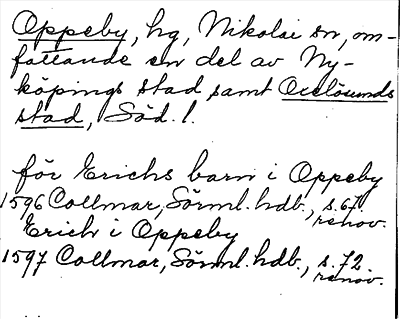 Oppeby, hg, Nikolai sn, om-
fattande en del av Ny-
köpings stad samt Oxelösunds
stad, Söd. l.
för Erichs barn i Oppeby
1596 Collmar, Sörml. hdb., s. 67.
renov.
Erich i Oppeby
1597 Collmar, Sörml. hdb., s. 72
renov.